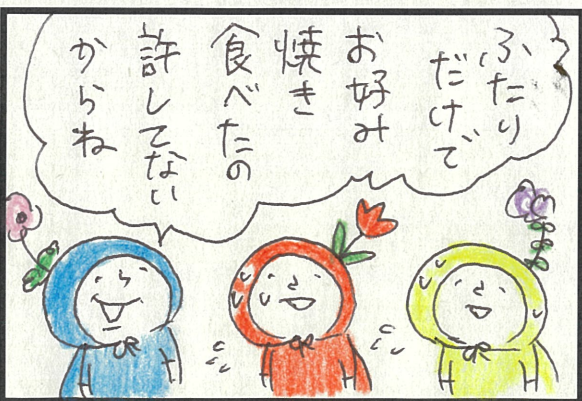 ふたり
だけで
お好み
焼き
食べたの
許してない
からね